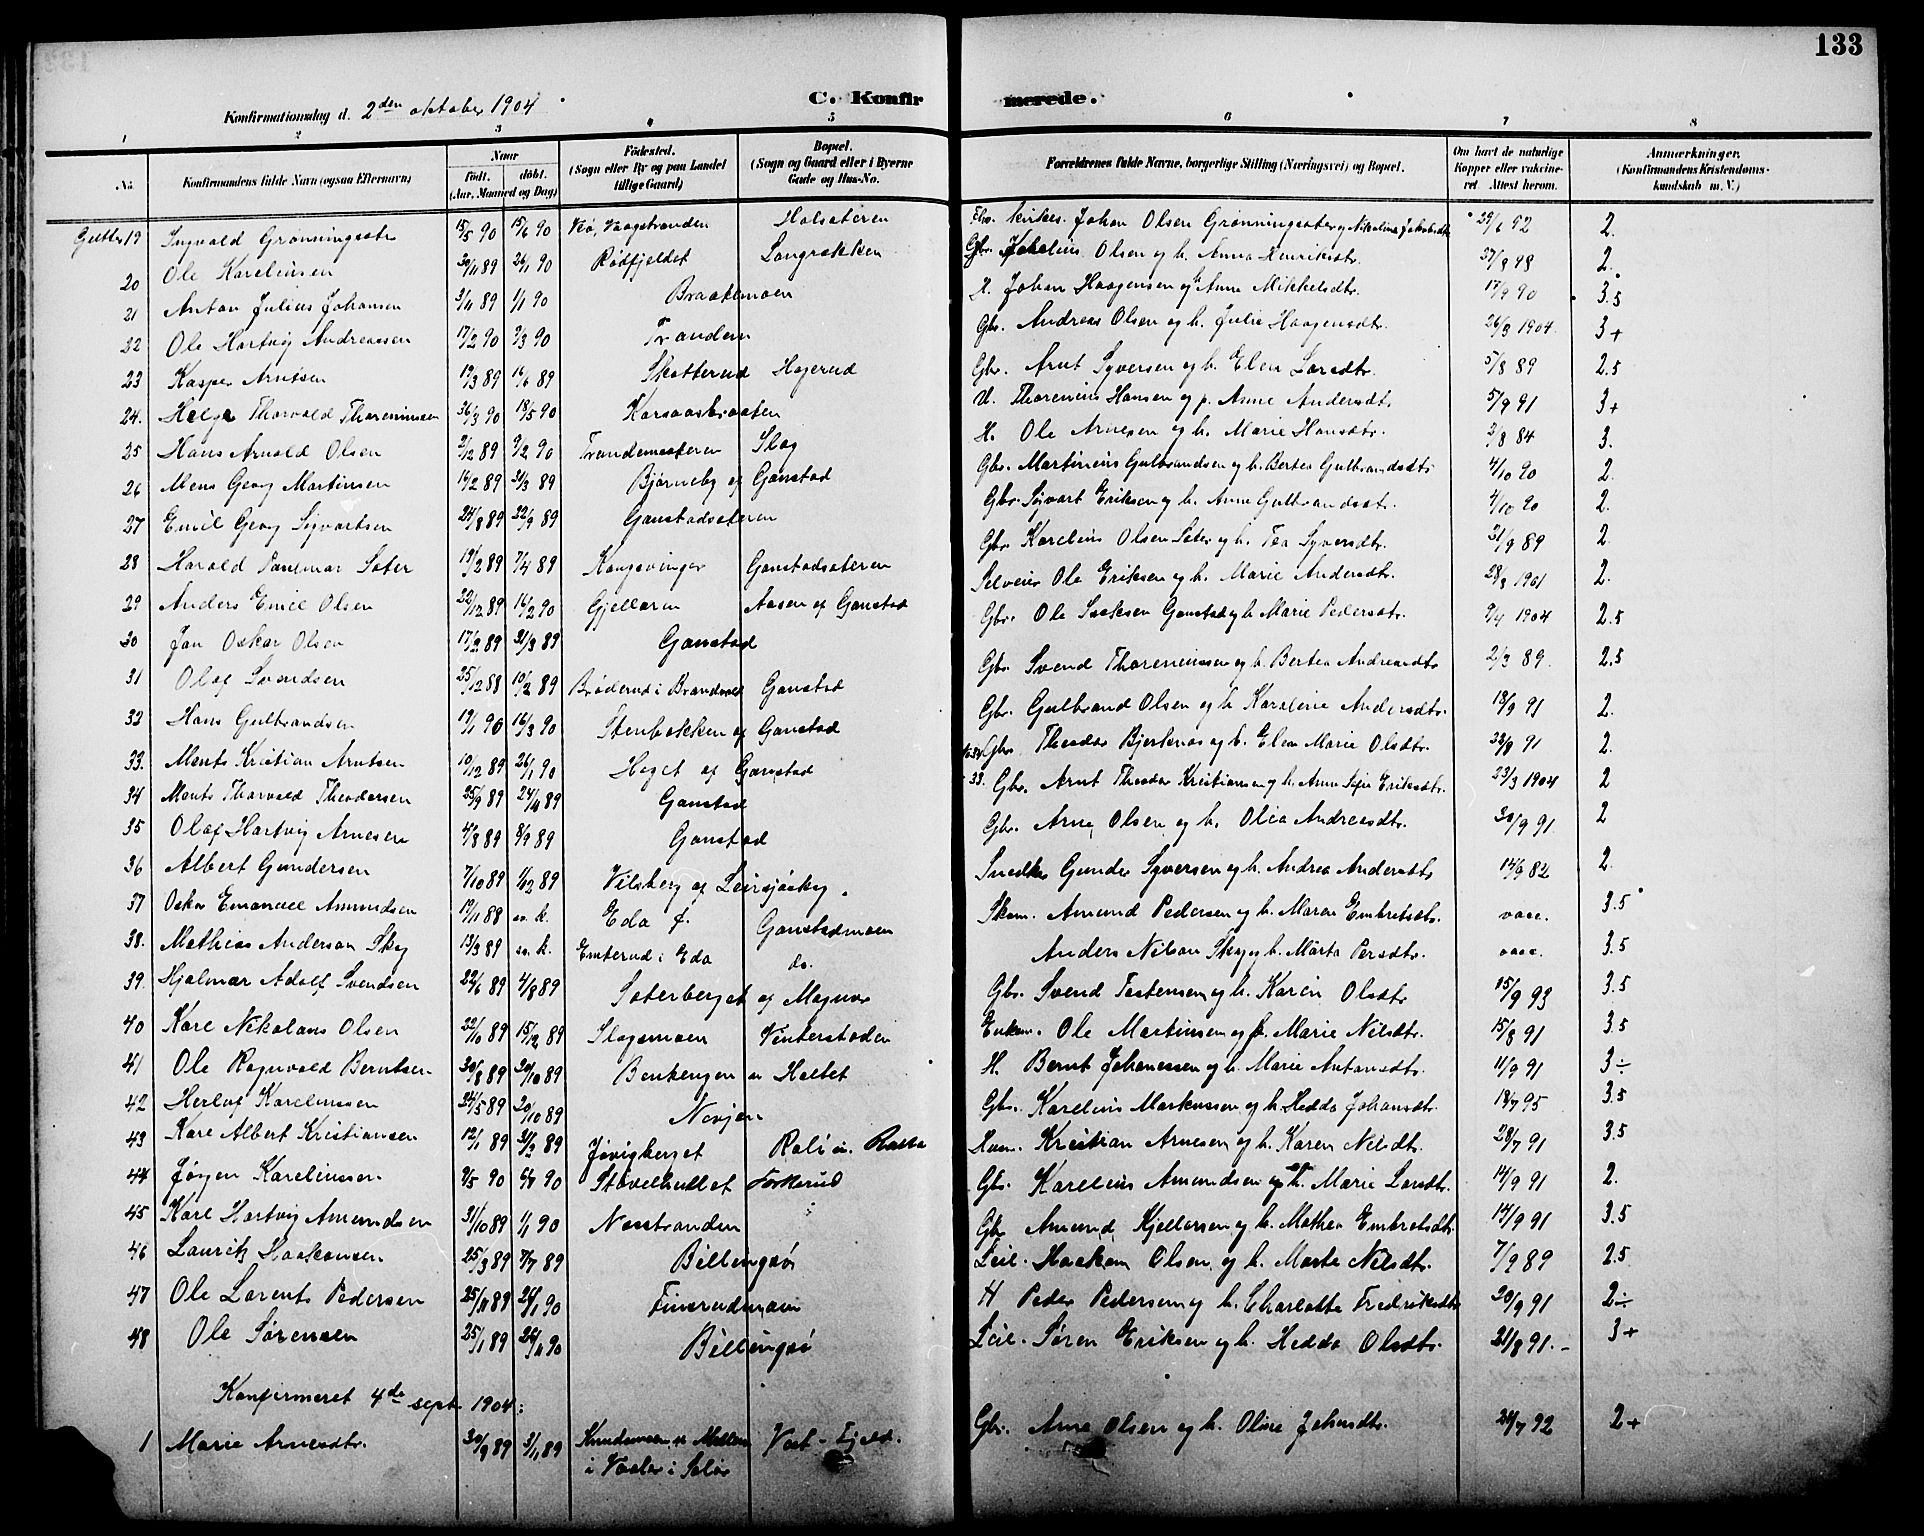 133
C. Konfirmerede.
Konfirmationsdag d. 2den oktober 1904
1 2 3 4 5 6 7 8
No. Konfirmandens fulde Navn (ogsaa Efternavn) Naar født. døbt. (Aar, Maaned og Dag) Fødested. (Sogn eller By og paa Landet tillige Gaard) Bopæl. (Sogn og Gaard eller i Byerne Gade og Hus-No. Forældrenes fulde Navne, borgerlige Stilling (Næringsvei) og Bopæl. Om havt de naturlige Kopper eller vakcineret. Attest herom. Anmærkninger. (Konfirmandens Kristendomskundskab m. V.)
Gutter 19 Ingvald Grønningsæter 15/5 90 15/6 90 Johan Olsen Grønningsæter og Nikoline Jakobsdtr 29/6 92 2.
20 Ole Karelinsen 30/11 89 26/1 90 Rødfjeldet Langrækken Gbr. Karelius Olsen og h. Anna Henriksdtr. 2.
21 Anton Julius Johansen 3/11 89 1/1 90 Braatemoen H. Johan Haagensen og Anne Mikkelsdtr. 17/9 90 3.5
22 Ole Hartvig Andreassen 17/2 90 9/3 90 Trandem Gbr. Andreas Olsen og h. Julie Haagensdtr. 26/3 1904. 3+
23 Kasper Arntsen 19/3 89 16/6 89 Skotterud Hogerud Gbr. Arnt Syversen og h. Elen Larsdtr. 5/8 89 2.5
24. Helge Thorvald Thoreniussen 26/3 90 18/5 90 Korsaasbraaten U. Thorenius Hansen og p. Anne Andersdtr. 5/9 91 3+
25 Hans Arnold Olsen 2/12 89 9/2 90 Trandemsæteren Slag H. Ole Arnesen og h. Marie Hansdtr. 3/8 84 3.
26 Mens Georg Martinsen 16/2 89 31/3 89 Bjørneby af Ganstad Gbr. Martinius Gulbrandsen og h. Bertea Gulbrandsdtr. 4/10 90 2.
27 Emil Georg Sigvartsen 24/8 89 22/9 89 Ganstadsæteren Gbr. Sigvart Eriksen og h. Anne Gulbrandsdtr. 4/10 90 2.
28 Harald Sæter 19/2 89 7/4 89 Kongsvinger Ganstadsæteren Gbr. Karelius Olsen Sæter og h. Tea Syversdtr. 21/9 89 2.
29 Anders Emil Olsen 22/12 89 16/2 90 Gjelleren Aasen af Ganstad Selveier Ole Eriksen og h. Marie Andersdtr. 28/3 1901 2.
30 Jan Oskar Olsen 17/2 89 31/3 89 Ganstad Gbr. Ole Isaksen Ganstad og h. Marie Pedersdtr. 9/4 1904 2.5
31 Olaf Svendsen 25/12 88 10/2 89 Brøderud i Brandvold Ganstad Gbr. Svend Thoreniussen og h. Bertea Andreasdtr. 2/3 89. 2.5
32 Hans Gulbrandsen 19/1 90 16/3 90 Stenbækken af Ganstad Gbr. Gulbrand Olsen og h. Karelene Andersdtr. 18/9 91 2.
33. Ments Kristian Arntsen 10/12 89 26/1 90 Haget af Ganstad Gbr. Theodor Bjerknæs og h. Elen Marie Olsdtr. 2.
34 Ments Thorvald Theodorsen 25/9 89 24/11 89 Ganstad 33. Gbr. Arnt Theodor Kristiansen og h. Anne Sofie Eriksdtr. 23/3 1904 2
35 Olaf Hartvig Arnesen 4/8 89 8/9 89 Ganstad Gbr. Arne Olsen og h. Olea Andreasdtr. 30/9 91. 2
36 Albert Gundersen 7/10 89 1/12 89 Vilsberg af Leirsjøskog. Snedker Gunder Syversen og h. Andrea Andersdtr. 14/9 82 2.
37 Oskar Emanuel Amundsen 19/11 88 sv. k. Eda f. Ganstadmoen Skom. Amund Pedersen og h. Maren Embretsdtr. vacc. 3.5
38. Mathias Anderson Skog 13/3 89 sv. k. Emterud i Eda do. Anders Nilson Skog og h. Märta Persdtr. vacc. 3.5
39. Hjalmar Adolf Svendsen 22/6 89 4/8 89 Sæterberget af Magnor Gbr. Svend Tostensen og h. Karin Olsdtr 15/9 93 3.5
40 Kare Nikolaus Olsen 22/10 89 15/12 89 Slagsmoen Vinterstøden Enkem. Ole Martinsen og h. Marie Nilsdtr. 15/8 91 3.5
41 Ole Ragnvald Berntsen 30/8 89 20/10 89 Benkengen u. Holtet H. Bernt Johanessen og h. Marie Antonsdtr. 11/9 91 3÷
42 Herlof Kareliussen 24/5 89 20/10 89 Gbr. Karelius Markussen og h. Hedda Johansdtr. 18/7 95 3.5
43 Kare Albert Kristiansen 12/1 89 31/3 89 Kristian Arnesen og h. Karen Nilsdtr. 28/7 91 3.5
44 Jørgen Kareliussen 9/5 90 90 Støvelhullet Taskerud Gbr. Karelius Amundsen og h. Marie Larsdtr. 14/9 91 2.
45 Karl Hartvig Amundsen 31/10 89 1/1 90 Næstranden Gbr Amund Kjellersen og h. Mathea Embretsdtr. 14/9 91 3.5
46 Lauritz Haakonsen 25/3 89 7/7 89 Billingsø Leil. Haakon Olsen og h. Marte Nilsdtr. 7/9 89 2.5
47 Ole Lorents Pedersen 25/11 89 26/1 90 Finsrudmoen H Peder Pedersen og h. Charlotte Fredriksdtr 20/9 91 2÷
48 Ole Sørensen 25/1 89 Billingsø Leil. Søren Eriksen og h. Hedda Olsdtr. 21/8 91. 3+
Konfirmeret 4de sept. 1904:
1 Marie Arnesdtr. 30/9 89 3/11 89 i Vaaler i Solør Vest-Fjeld. Gbr. Arne Olsen og h. Oline Johnsdtr. 24/7 92 2+